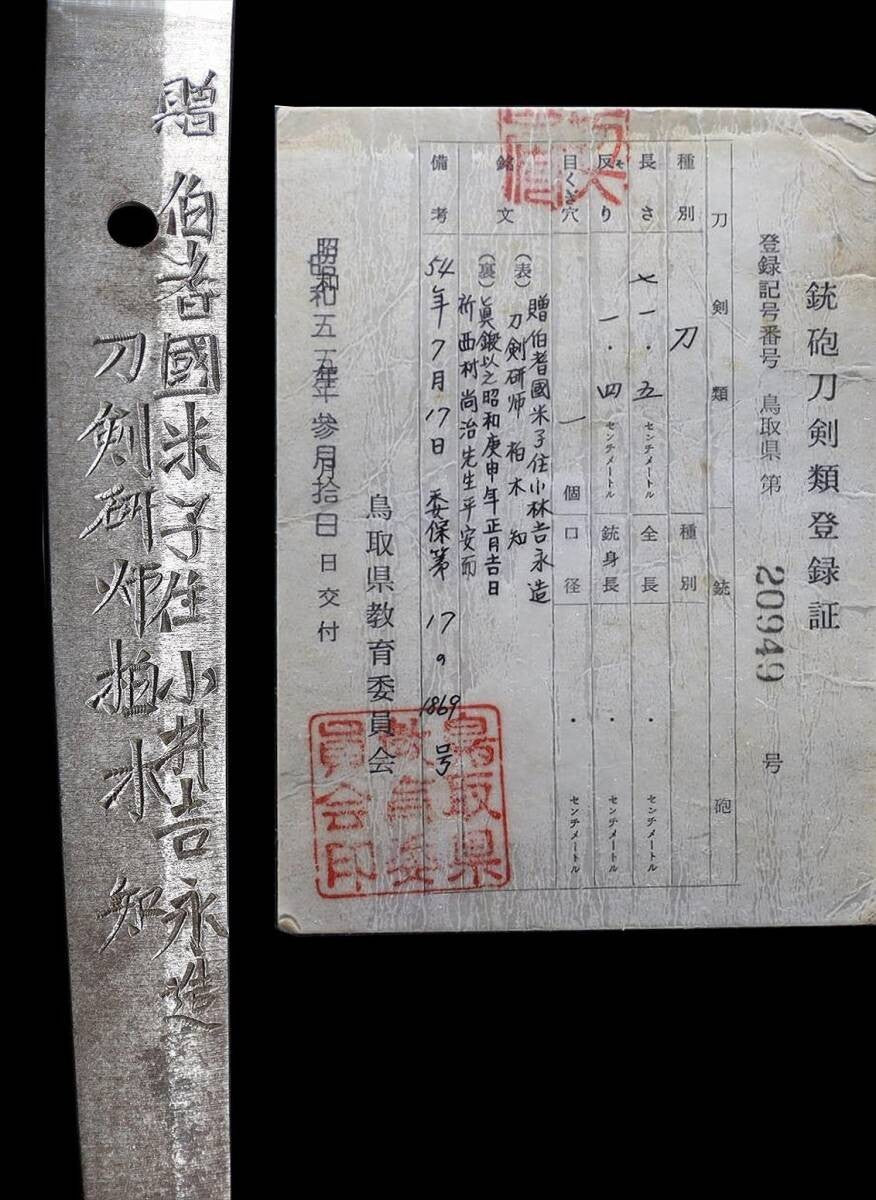 贈 伯耆國米子住小林吉永造
刀剣研师柏木 知
銃砲刀剣類登録証
登録記号番号 鳥取県 第 20949 号
刀剣類 銃砲
種別 刀 種別
長さ 七一・五 センチメートル 全長 ・ センチメートル
反り そ 一・四 センチメートル 銃身長 ・ センチメートル
目くぎ穴 一個 口径 ・ センチメートル
銘文 (表) 贈伯耆國米子住小林吉永造
刀剣研师 柏木 知
(裏) 眞鍛以之昭和庚申年正月吉日
祈西村尚治先生平安而
備考 54年7月17日 委保第17の1869号
昭和五五年参月拾日 日交付
鳥取県教育委員会
鳥取県教育委員会印